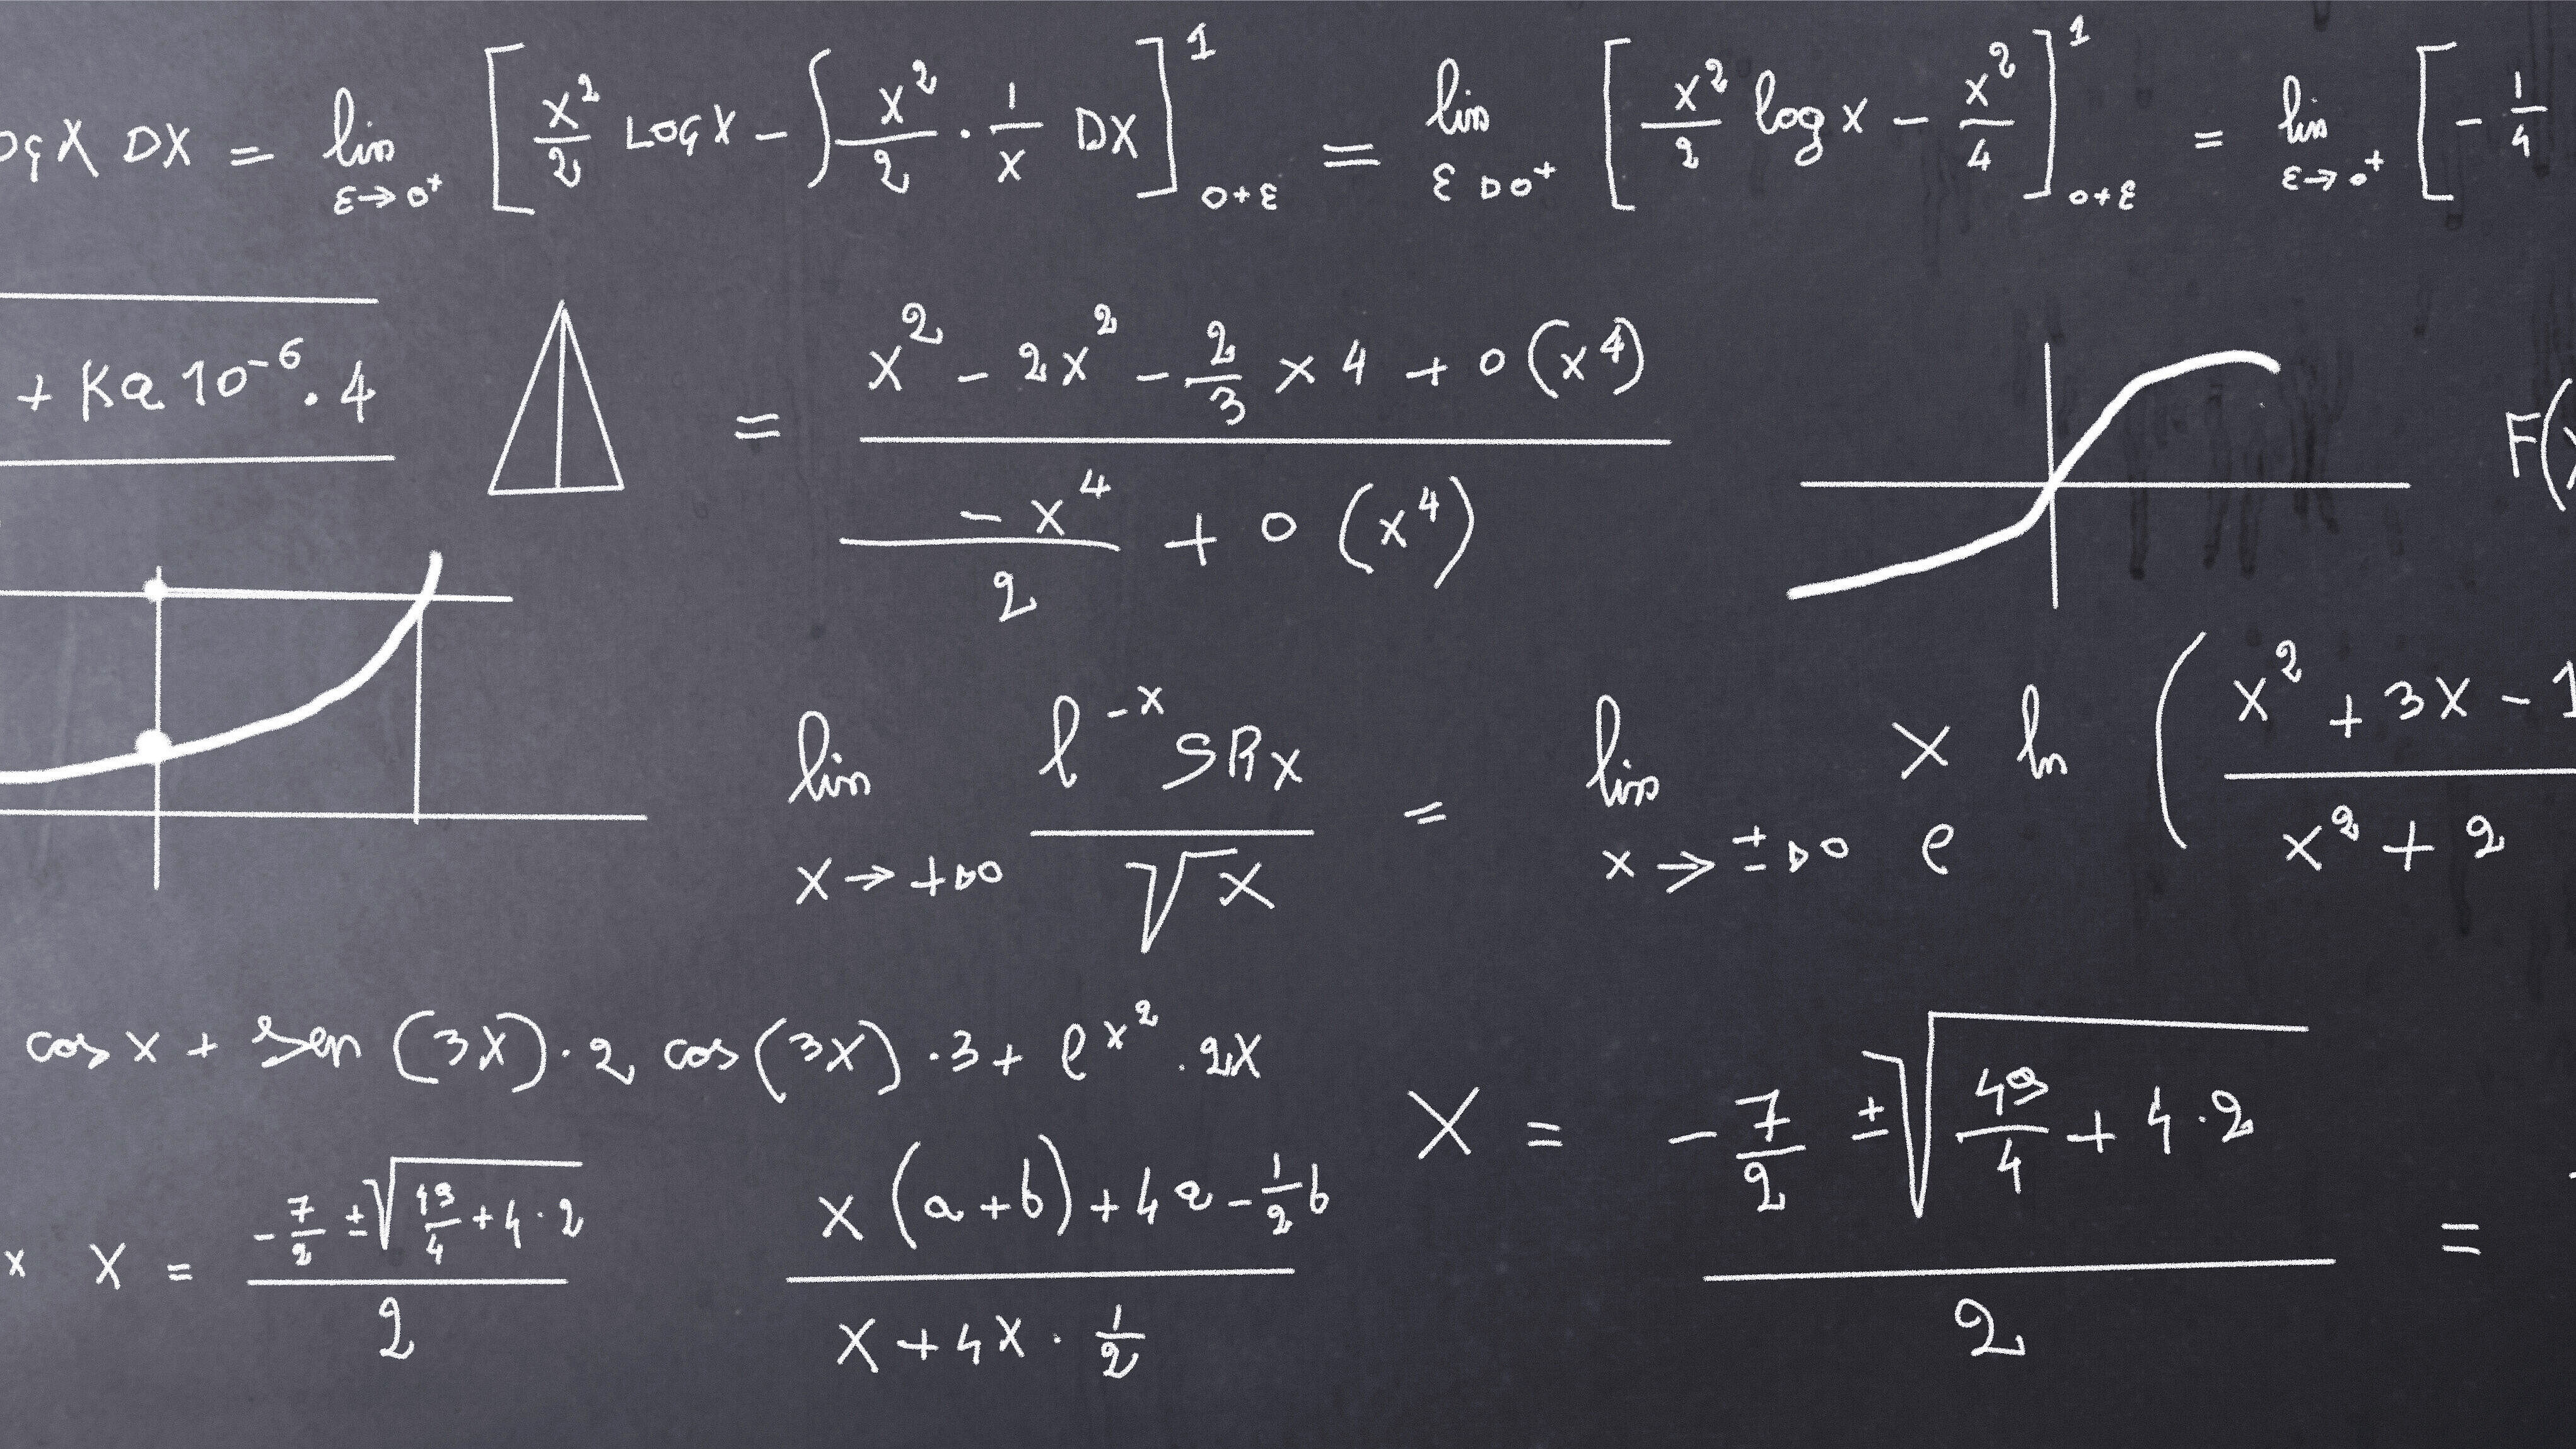 OgX DX = lim ε→0⁺ [x²/2 LOGX - ∫ x²/2 · 1/x DX]¹ ₀₊ε = lim ε D0⁺ [x²/2 log x - x²/4]¹ ₀₊ε = lim ε→0⁺ [- 1/4
+ Ka 10⁻⁶ . 4
= (x² - 2x² - 2/3 x 4 + o (x⁴)) / (-x⁴/2 + o (x⁴))
F(x
lim x→+DO (l⁻ˣ SRx) / √x = lim x→±DO e x ln (x² + 3x - 1 / x² + 2
cos x + sen (3x) · 2 cos (3x) · 3 + e ˣ² . 2x
x X = (-7/2 ± √(49/4 + 4 · 2)) / 2
(x (a+b) + 4a - 1/2 b) / (x + 4x · 1/2)
X = (-7/2 ± √(49/4 + 4 · 2)) / 2 =